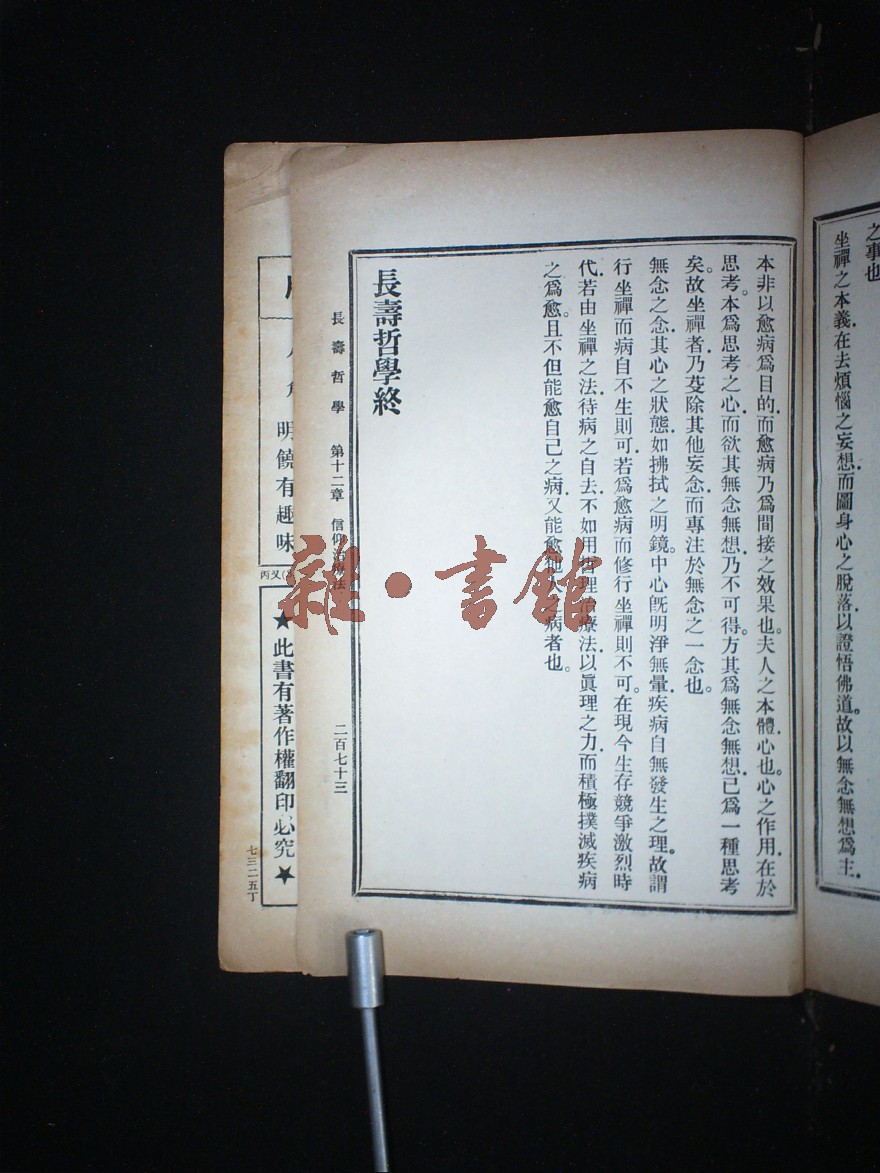 之事也
坐禪之本義．在去煩惱之妄想．而圖身心之脫落．以證悟佛道。故以無念無想爲主．
本非以愈病爲目的．而愈病乃爲間接之效果也。夫人之本體．心也。心之作用．在於
思考。本爲思考之心．而欲其無念無想．乃不可得。方其爲無念無想．已爲一種思考
矣。故坐禪者．乃芟除其他妄念．而專注於無念之一念也。
無念之念．其心之狀態．如拂拭之明鏡。中心旣明淨無暈．疾病自無發生之理。故謂
行坐禪而病自不生則可．若爲愈病而修行坐禪則不可。在現今生存競爭激烈時
代．若由坐禪之法．待病之自去．不如用哲理治療法．以眞理之力．而積極撲滅疾病
之爲愈。且不但能愈自己之病．又能愈他人之病者也。
長壽哲學終
長壽哲學　第十二章　信仰治療法　二百七十三
明饒有趣味
丙又
★此書有著作權翻印必究★
七三二五丁
雜·書館